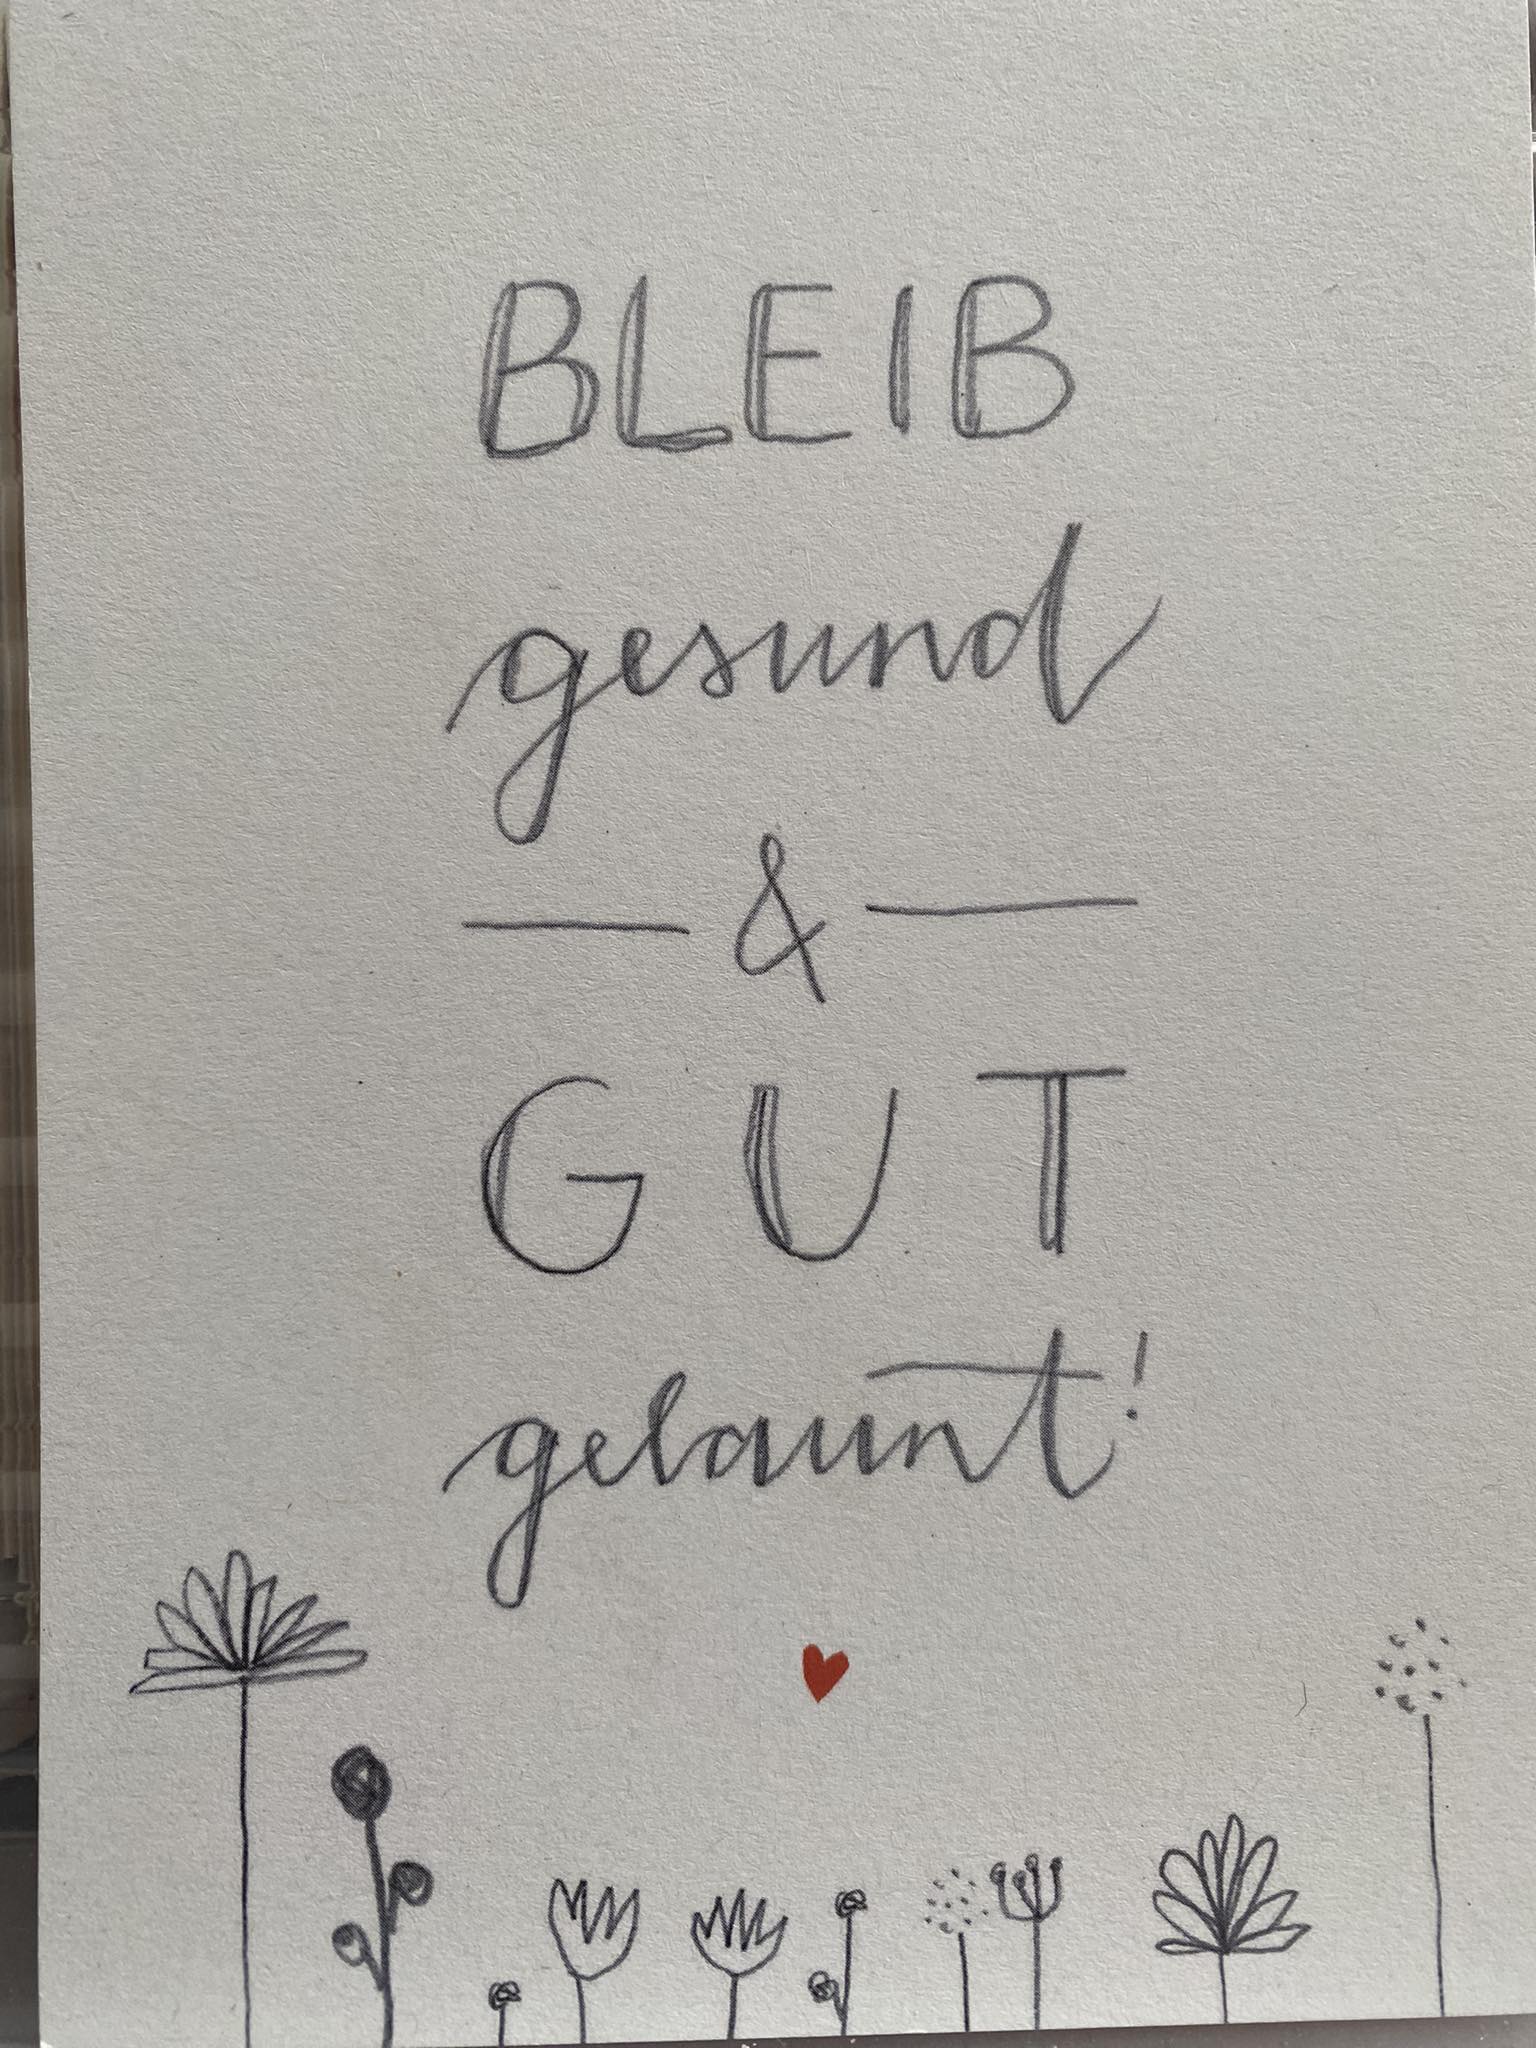 BLEIB
gesund
&
GUT
gelaunt!